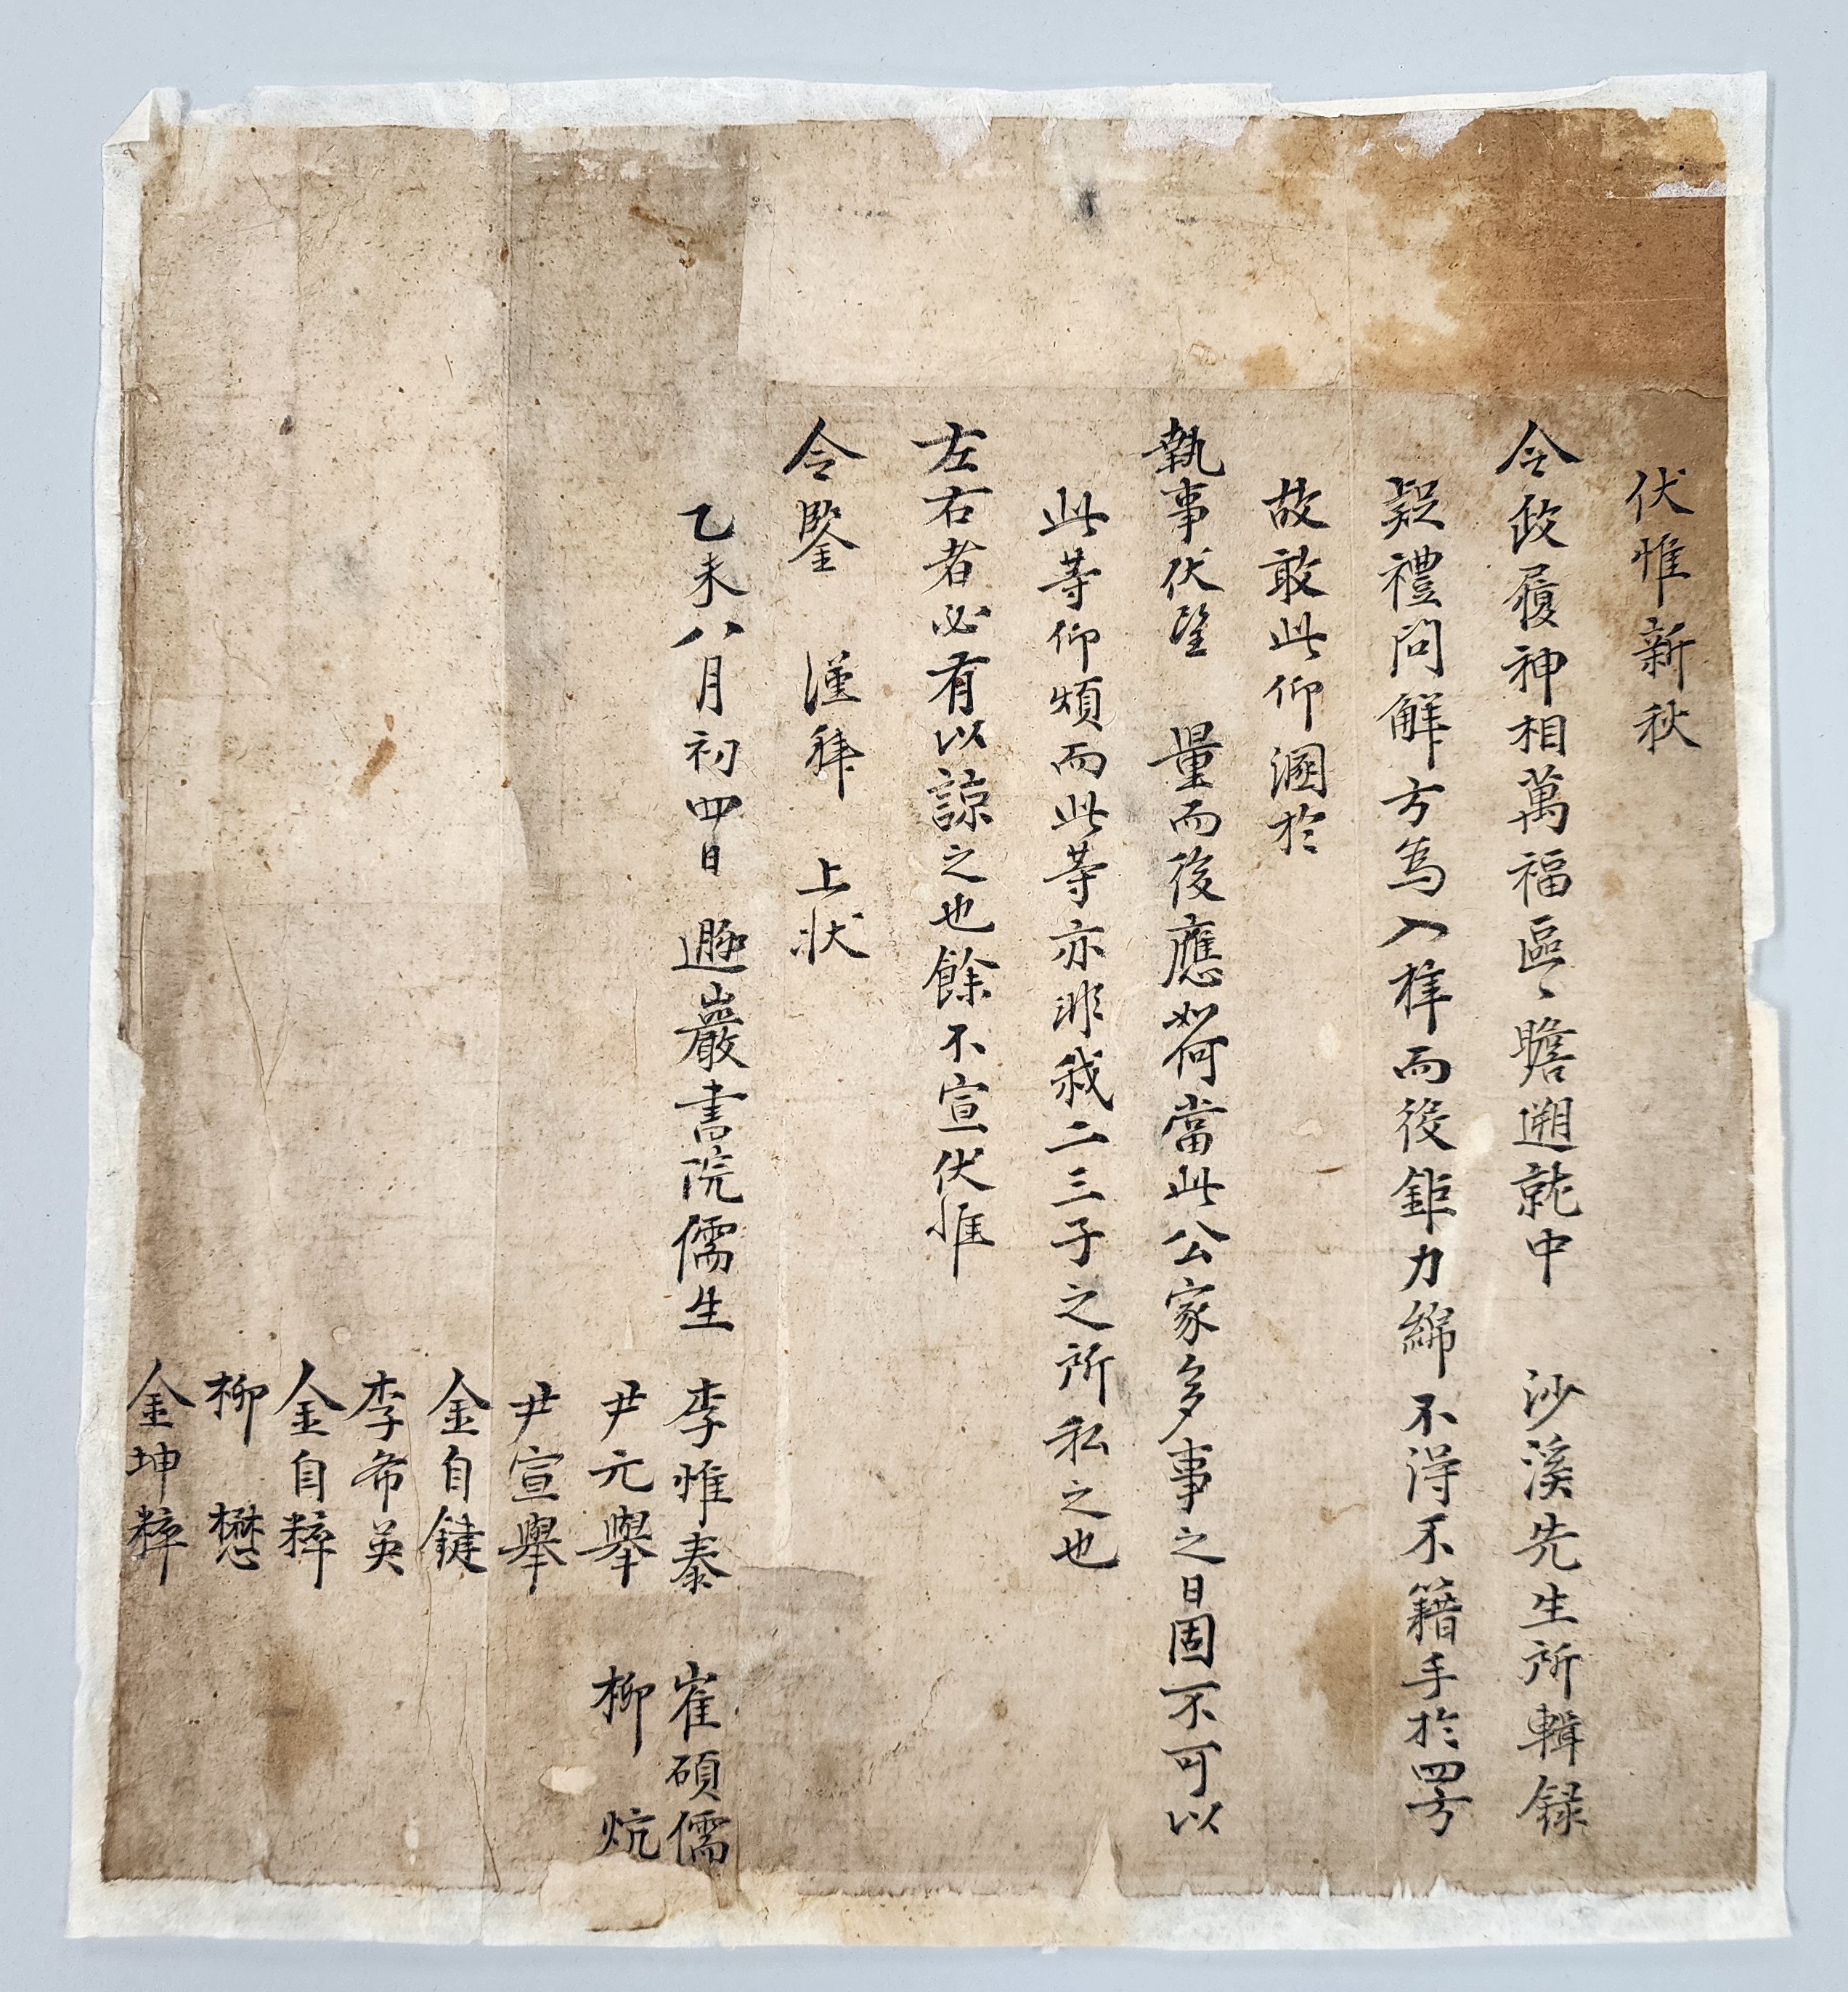 伏惟新秋
令政履神相萬福區〻瞻遡就中 沙溪先生所輯録
疑禮問解方為入梓而役鉅力綿不得不籍手於四方
故敢此仰溷於
執事伏望 量而後應如何當此公家多事之日固不可以
此等仰煩而此等亦非我二三子之所私之也
左右者必有以諒之也餘不宣伏惟
令鑒 謹拜 上狀
乙未八月初四日 遯巖書院儒生 李惟泰 崔碩儒
尹元舉 柳炕
尹宣舉
金自鍵
李希英
金自粹
柳懋
金坤粹